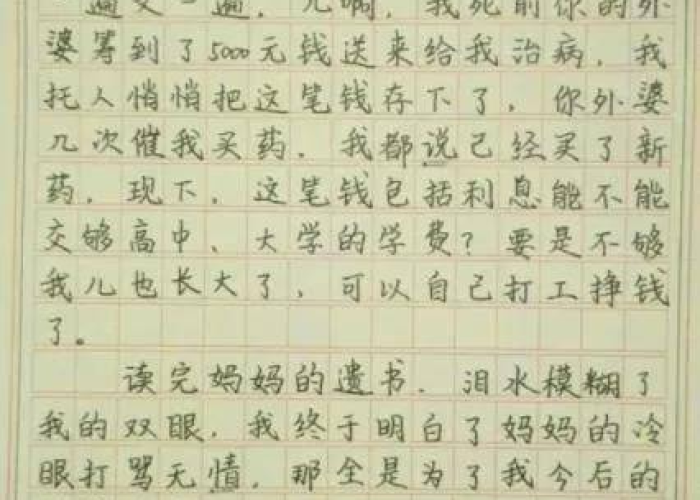 遍又一遍，儿啊，我死前你的外
婆筹到了5000元钱送来给我治病，我
托人悄悄把这笔钱存下了，你外婆
几次催我买药，我都说己经买了新
药，现下，这笔钱包括利息能不能
交够高中、大学的学费？要是不够
我儿也长大了，可以自己打工挣钱
了。
读完妈妈的遗书，泪水模糊了
我的双眼，我终于明白了妈妈的冷
眼打骂无情，那全是为了我今后的